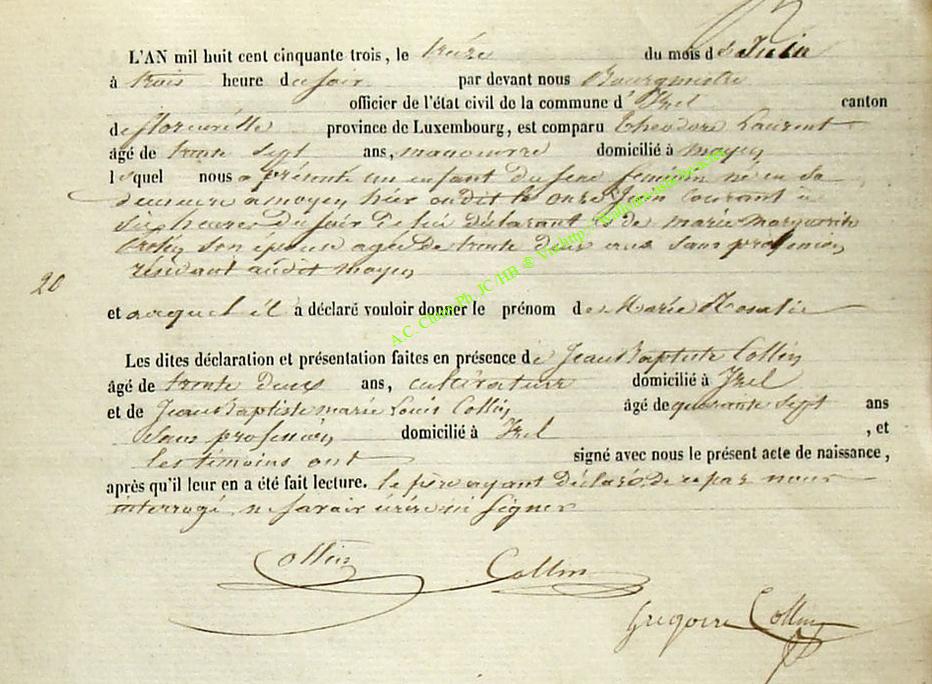 L'AN mil huit cent cinquante trois, le treize du mois de Juin
à trois heure du soir par devant nous Bourgmestre
officier de l'état civil de la commune d' Izel canton
de florenville province de Luxembourg, est comparu Théodore Laurent
âgé de trente sept ans, manoeuvre domicilié à moyen
lequel nous a présenté un enfant du sexe féminin né en sa
demeure à moyen hier audit le onze Juin courant à
six heures du soir de lui déclarant et de marie marguerite
son épouse agée de trente deux ans sans profession
résidant audit moyen
20
et auquel il a déclaré vouloir donner le prénom de Marie Rosalie
Les dites déclaration et présentation faites en présence de Jean Baptiste Collin
âgé de trente deux ans, cultivateur domicilié à Izel
et de Jean Baptiste marie Louis Collin âgé de quarante sept ans
sans profession domicilié à Izel , et
les témoins ont signé avec nous le présent acte de naissance,
après qu'il leur en a été fait lecture. le père ayant déclaré de ce par nous
interrogé ne savoir écrire ni signer
Collin Collin
Grégoire Collin
A.C. Chiny Ph. JC/HB © Via http://